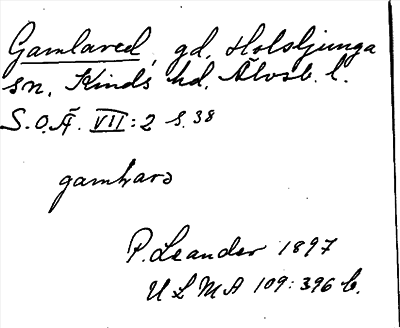 Gamlared, gd, Holsljunga
sn, Kinds hd, Älvsb. l.
S.O.Ä. VII:2 s. 38
P. Leander 1897
ULMA 109:396 b.